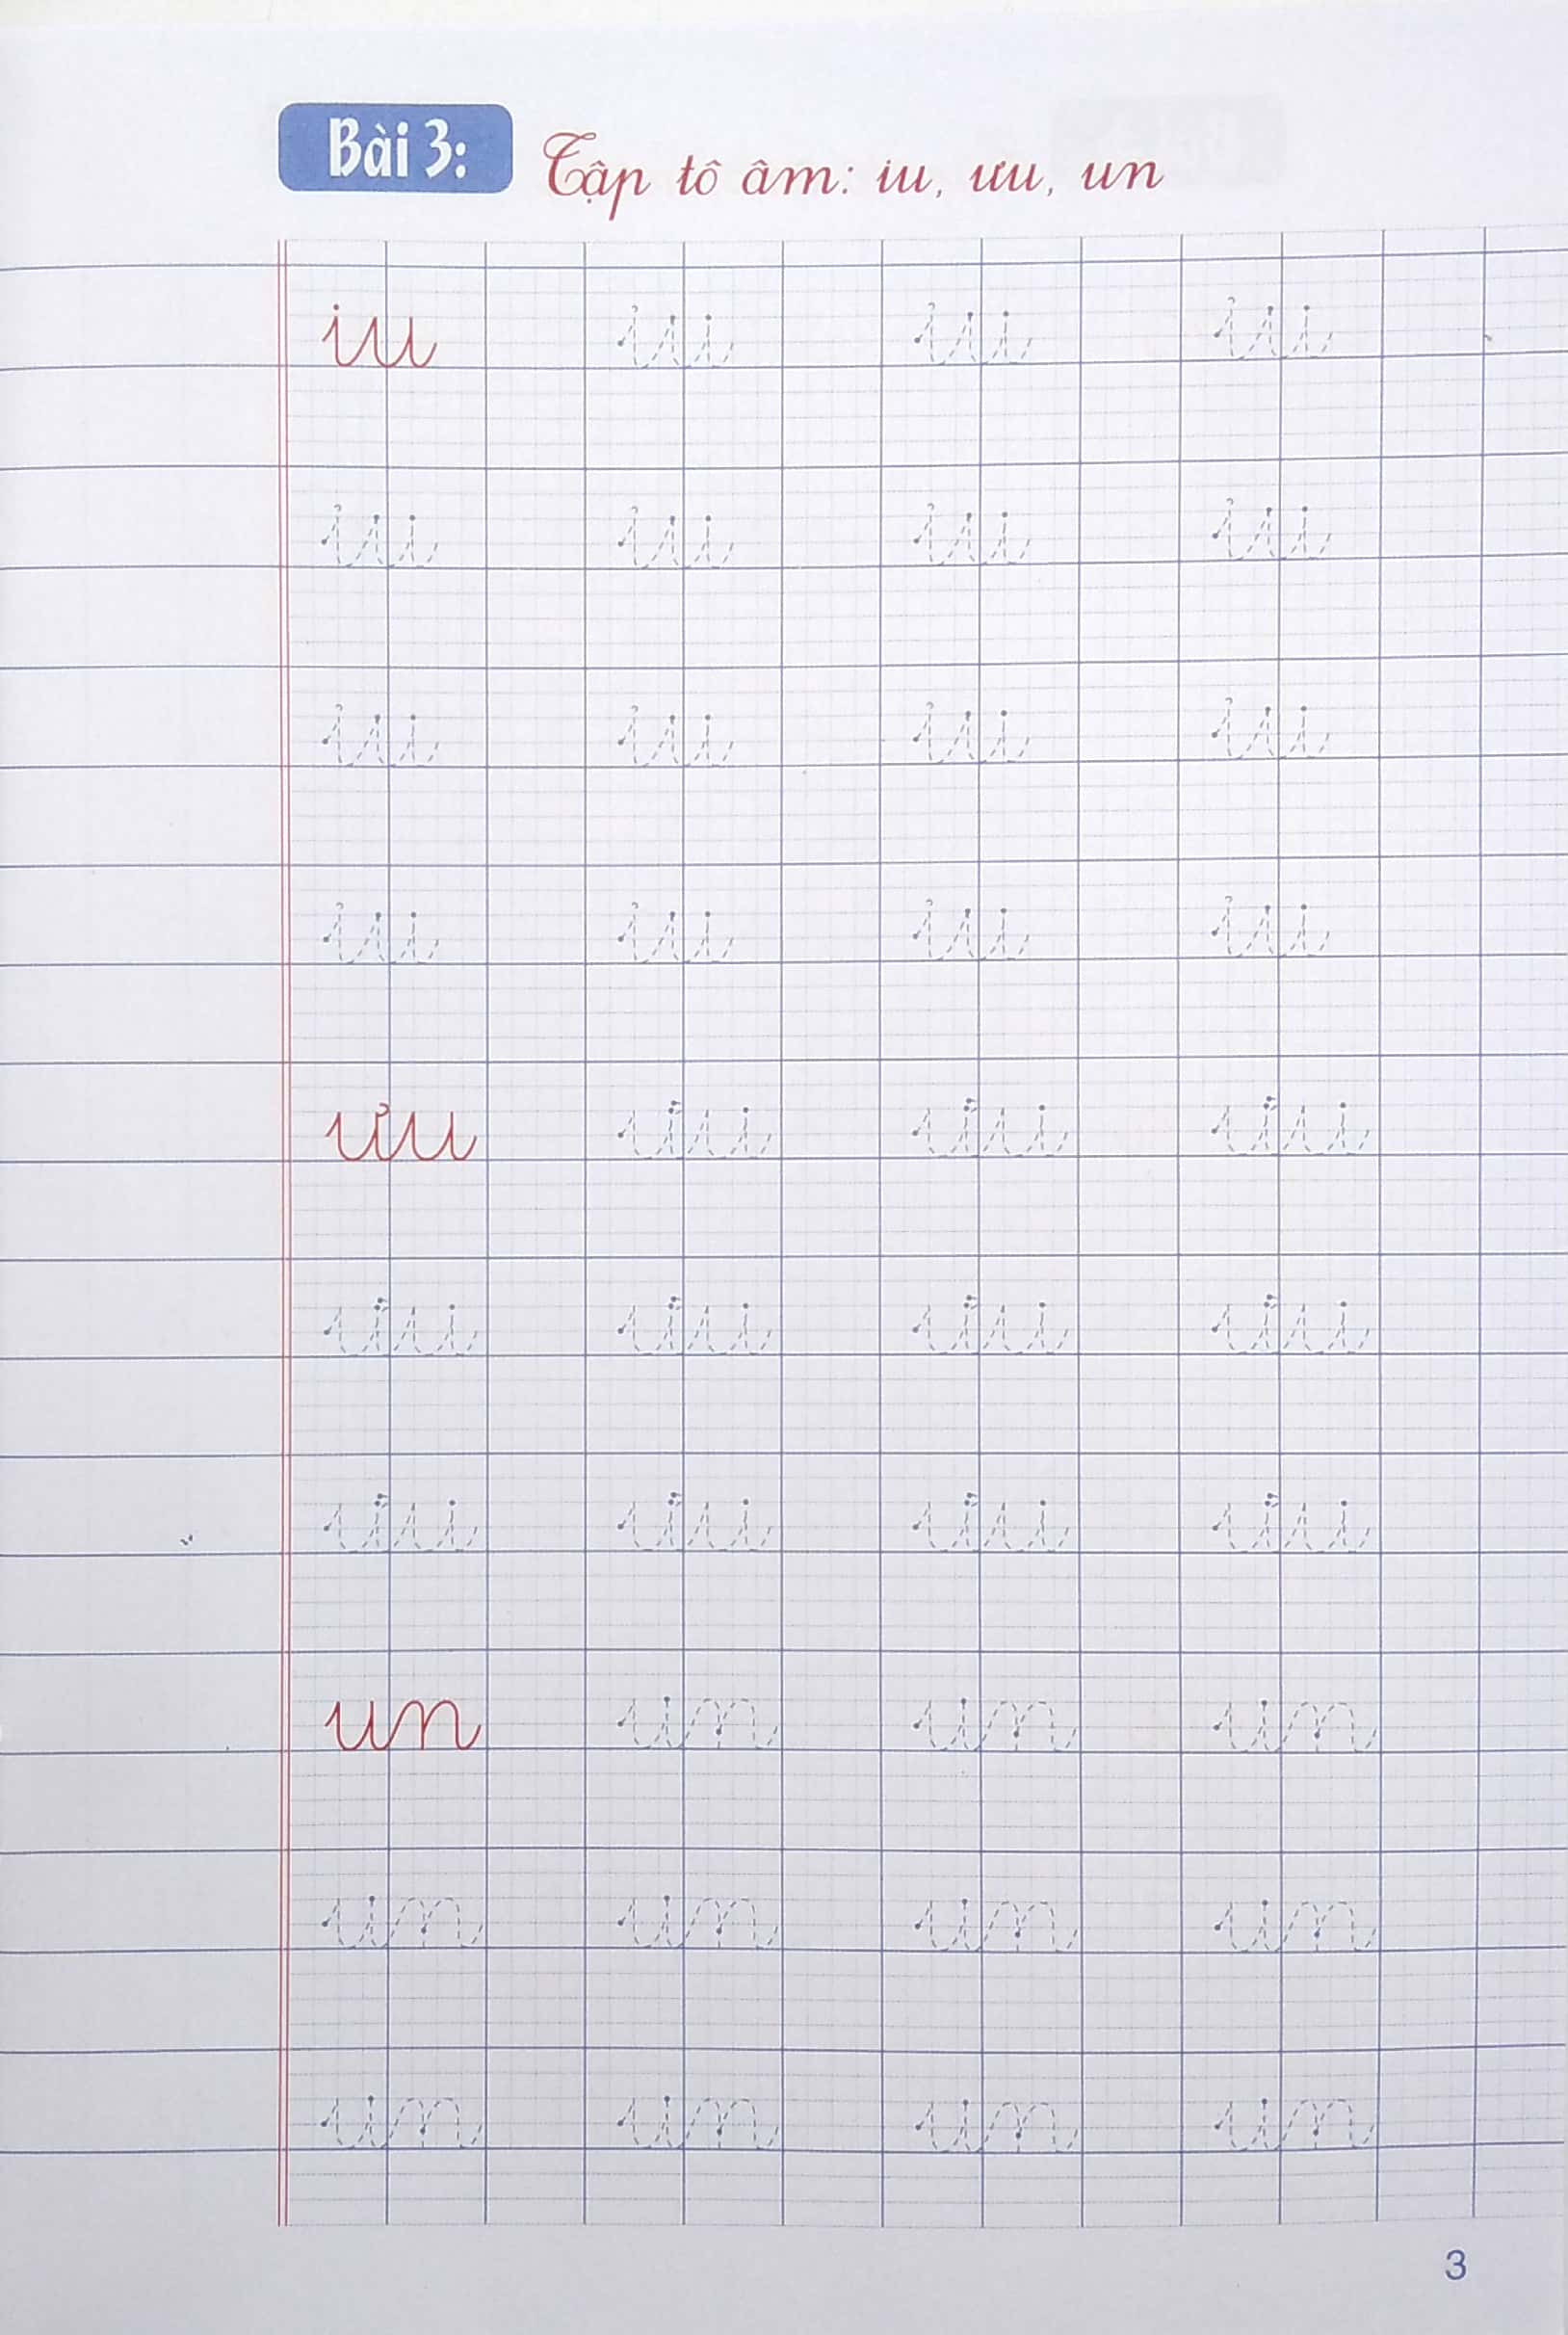 Bài 3: Tập tô âm: iu, ưu, un
iu iu iu iu
iu iu iu iu
iu iu iu iu
iu iu iu iu
ưu ưu ưu ưu
ưu ưu ưu ưu
ưu ưu ưu ưu
un un un un
un un un un
un un un un
3